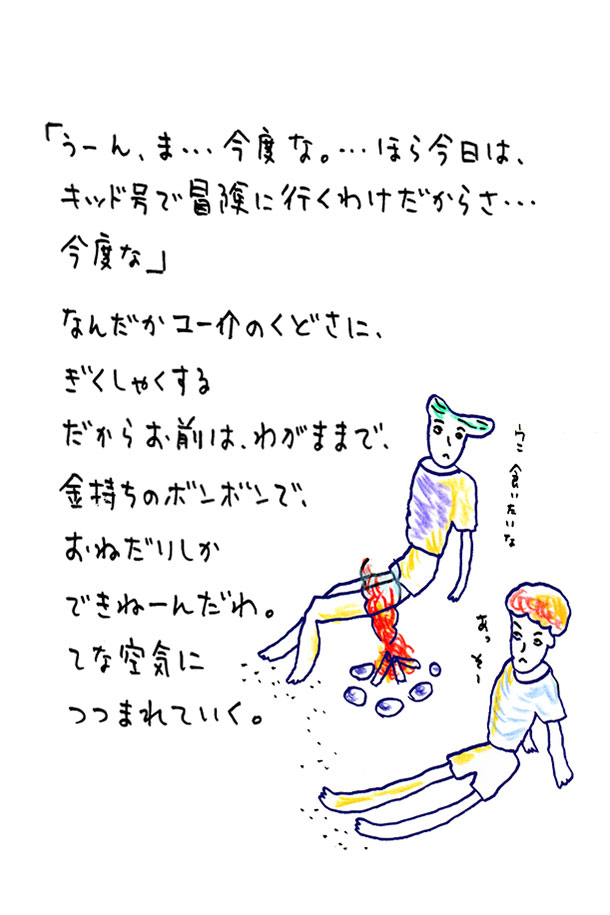 「うーん、ま…今度な。…ほら今日は、
キッド号で冒険に行くわけだからさ…
今度な」
なんだかコー介のくどさに、
ぎくしゃくする
だからお前は、わがままで、
金持ちのボンボンで、
おねだりしか
できねーんだわ。
てな空気に
つつまれていく。
うに食いたいな
あっそー